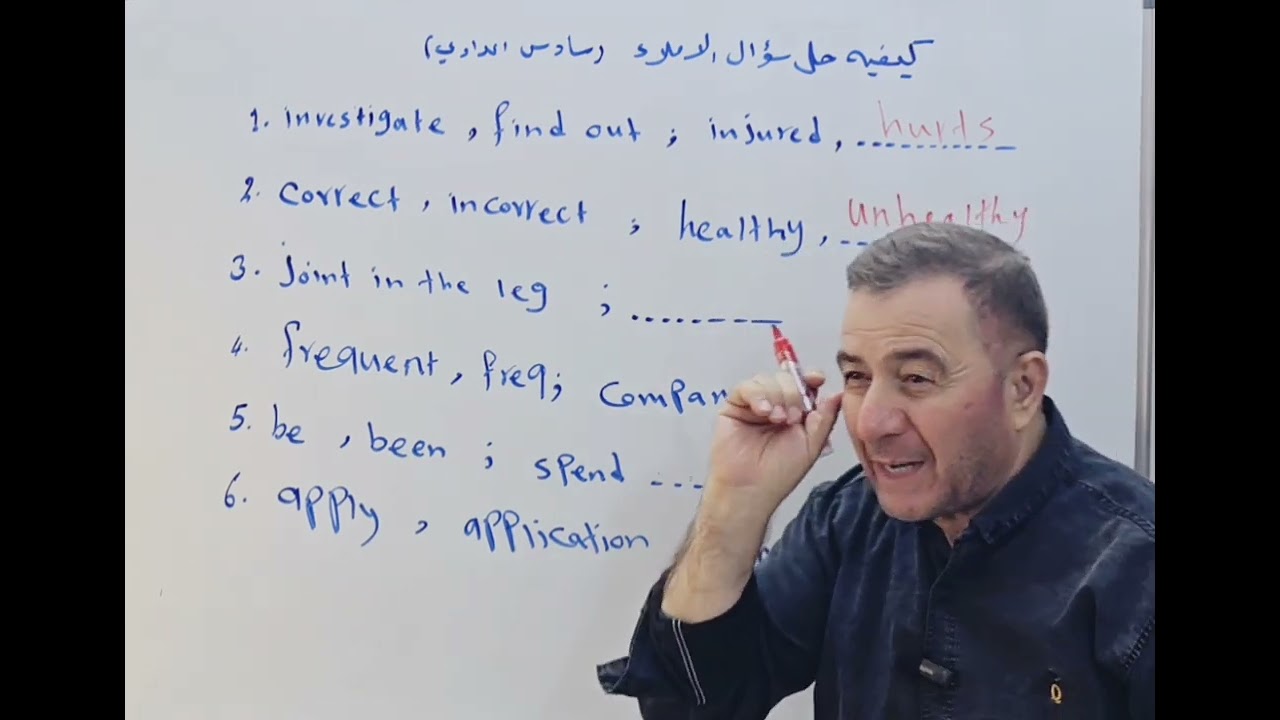 كيفيه حل سؤال الاملاء (سادس اعدادي)
1. investigate, find out ; injured, hurts
2. correct, incorrect ; healthy, unhealthy
3. Joint in the leg ; ........
4. frequent, freq; Compan
5. be, been ; spend ....
6. apply, application